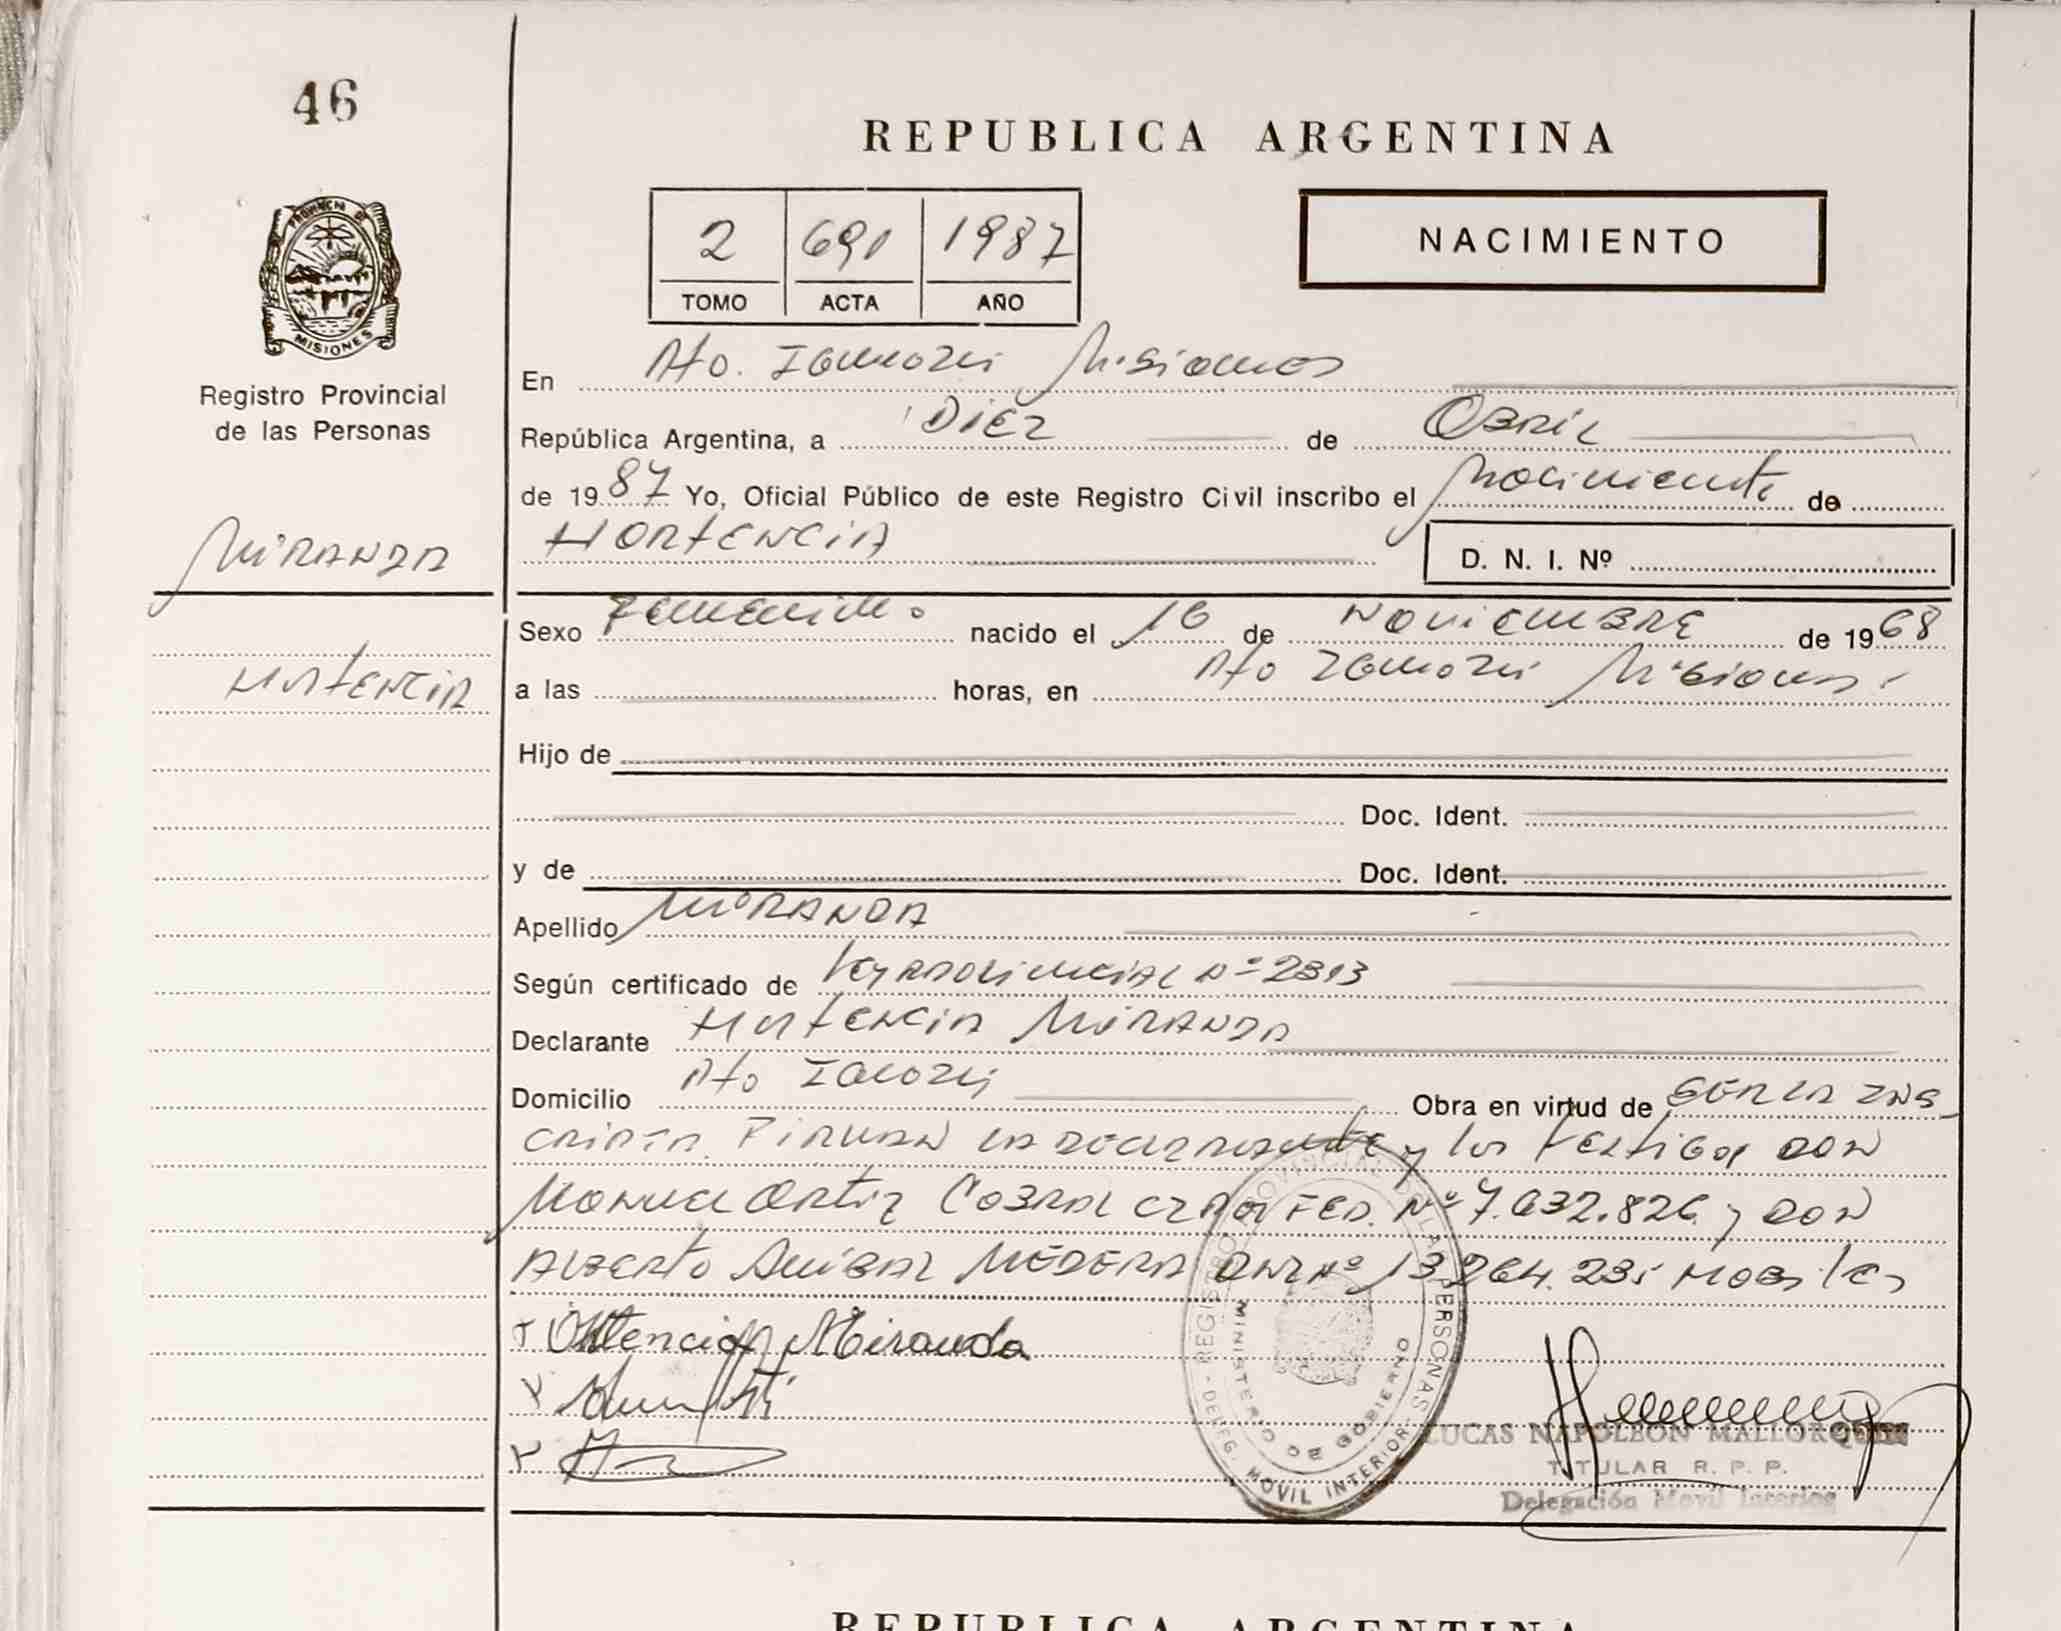 46
REPUBLICA ARGENTINA
PROVINCIA DE
MISIONES
Registro Provincial
de las Personas
2 691 1987
TOMO ACTA AÑO
NACIMIENTO
En Pto. Misiones
República Argentina, a Diez de Abril
de 1987 Yo, Oficial Público de este Registro Civil inscribo el Nacimiento de
HORTENCIA
D. N. I. Nº
MIRANDA
HORTENCIA
Sexo Femenino nacido el 16 de NOVIEMBRE de 1968
a las horas, en Pto Misiones
Hijo de
Doc. Ident.
y de Doc. Ident.
Apellido MIRANDA
Según certificado de Ley Provincial Nº 2313
Declarante HORTENCIA MIRANDA
Domicilio Pto Obra en virtud de SER LA INS
CRIPTA. FIRMAN LA DECLARANTE y los testigos DON
Manuel Ortiz Cabral CED. FED. Nº 7.632.826 y DON
Alberto Anibal MEDERA DNI Nº 13.264.235 Habiles
Ortencia Miranda
REGISTRO PROVINCIAL DE LAS PERSONAS - DELEG. MOVIL INTERIOR -
MINISTERIO DE GOBIERNO
LUCAS NAPOLEON MALLORQUIN
TITULAR R. P. P.
Delegación Movil Interior
REPUBLICA ARGENTINA